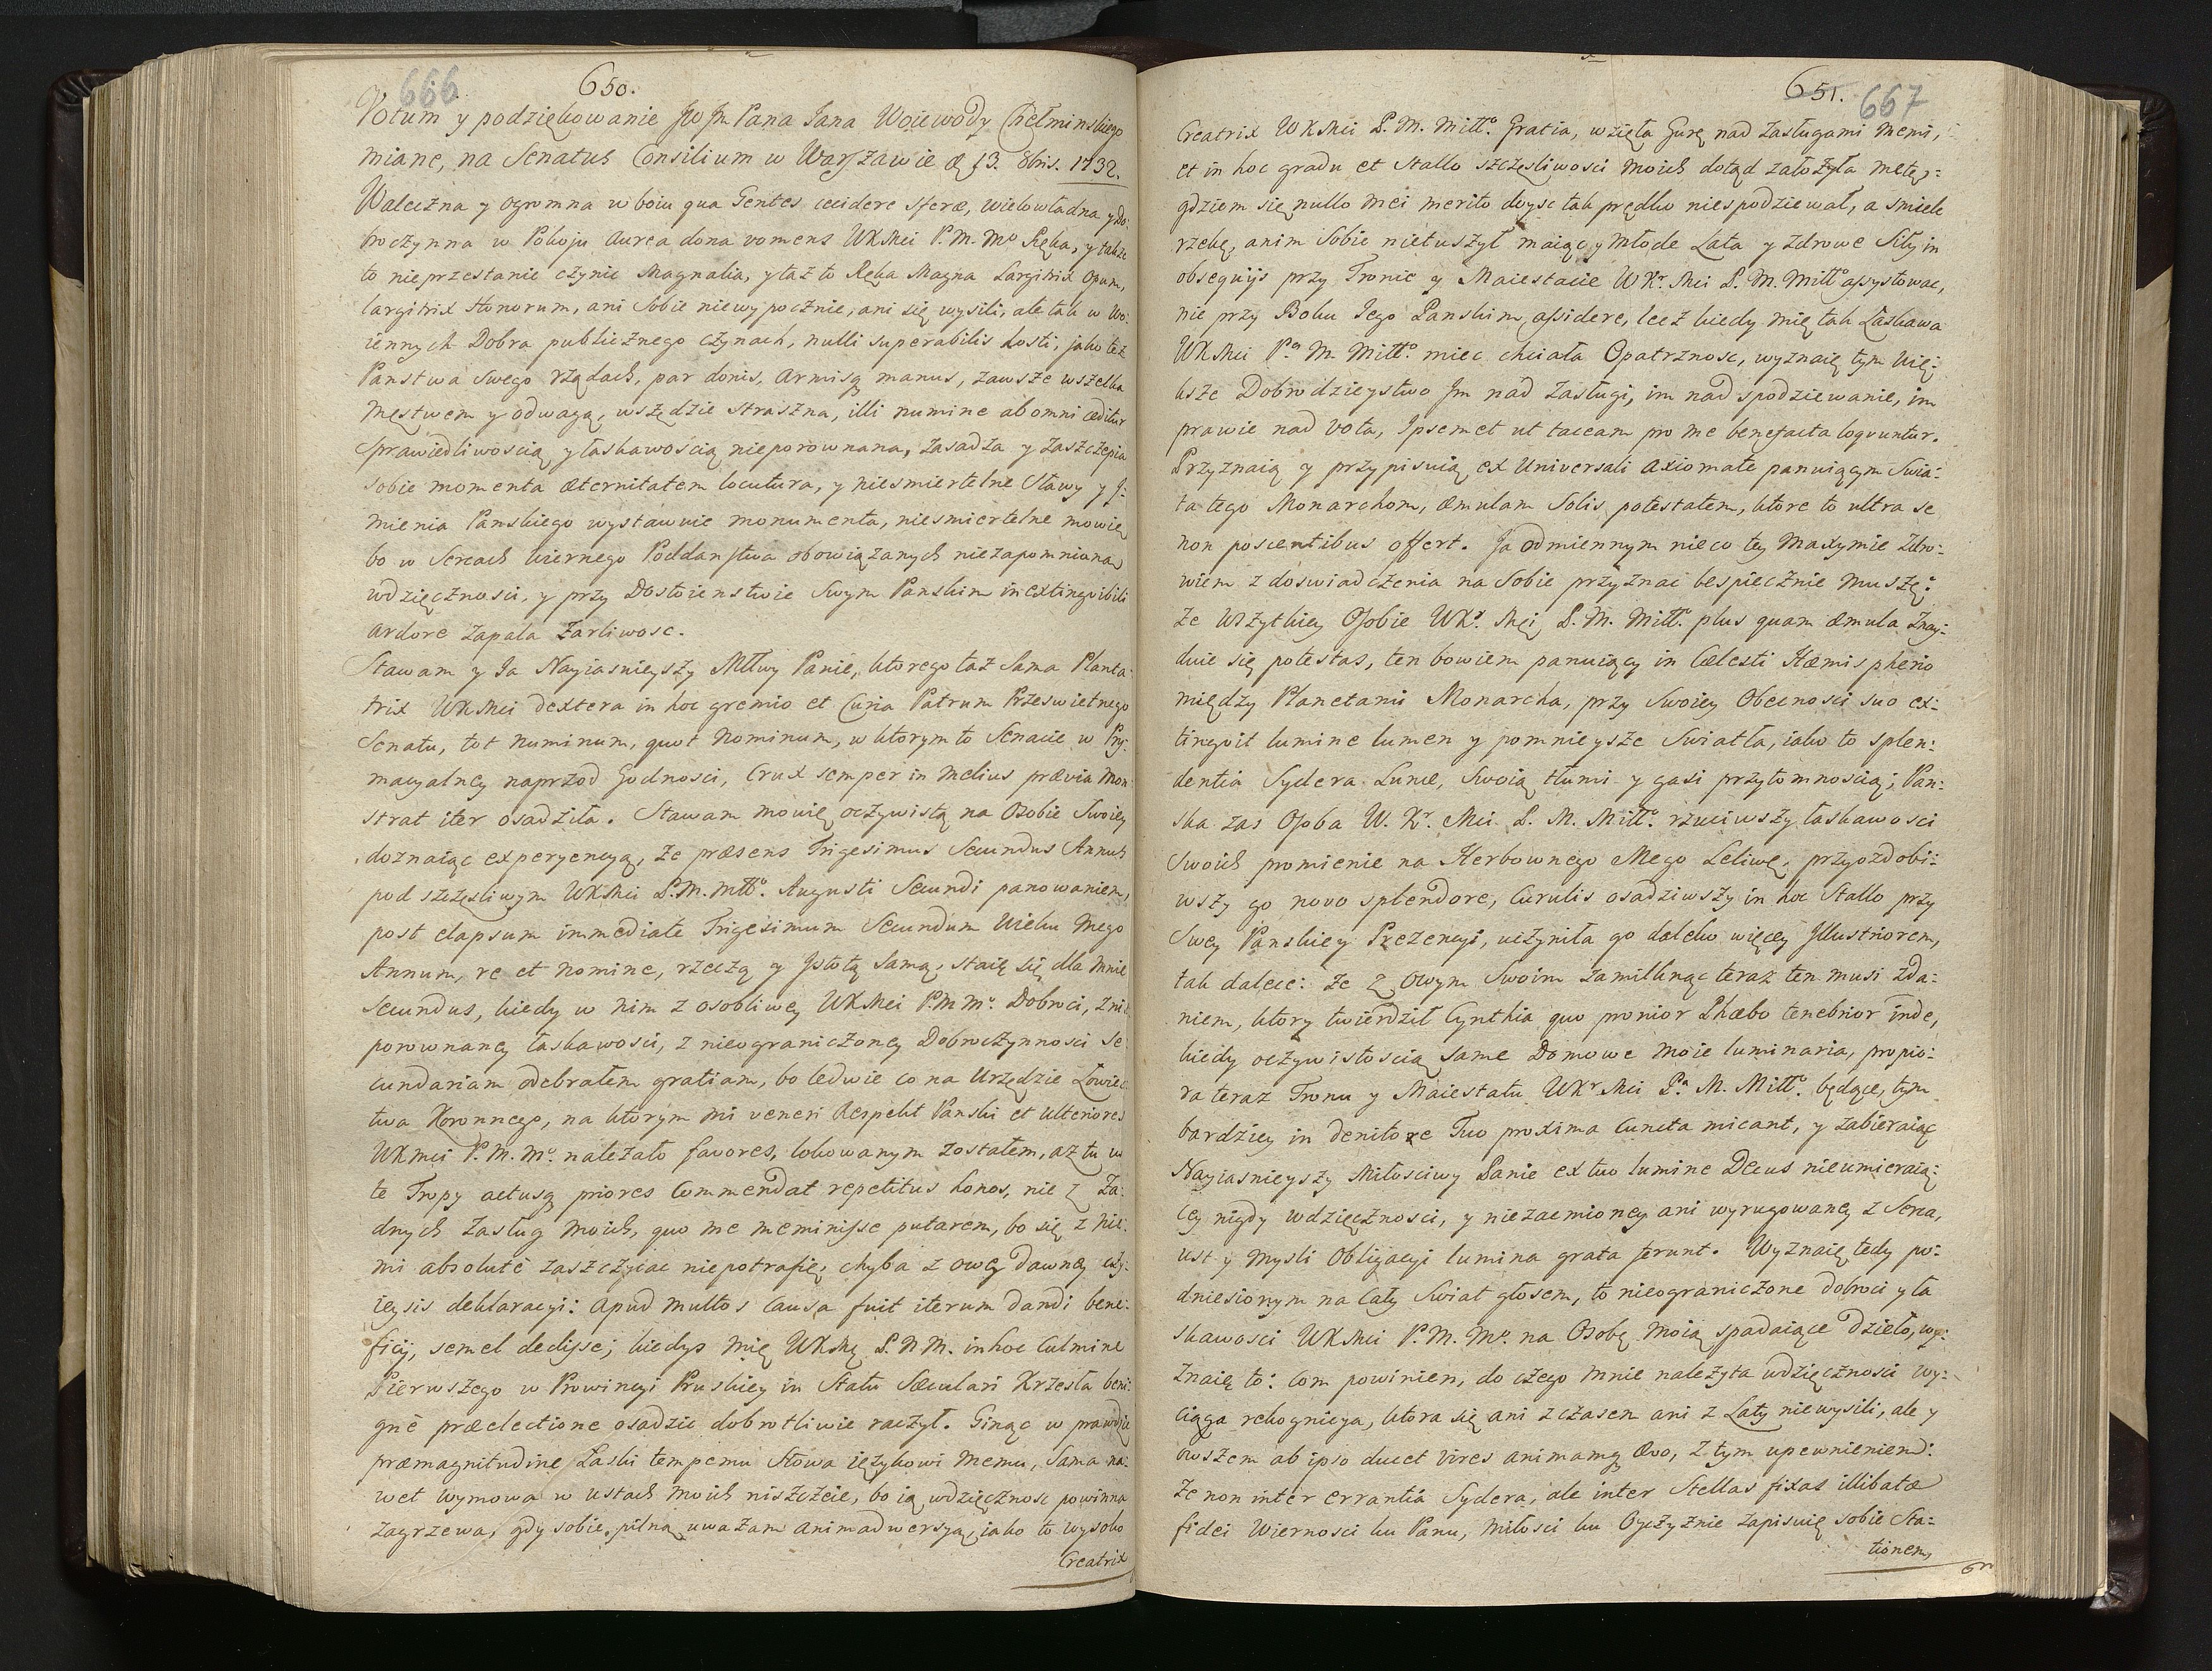 666
650.
Votum y podziękowanie JW Jm Pana Jana Woiewody Chełminskiego
miane, na Senatus Consilium w Warszawie d. 13. 8bris. 1732.
Waleczna y ogromna w boiu qua Gentes cecidere sferæ, wielowładna y do:
broczynna w Pokoju Aurea dona vomens WKMci P.M.Mo Ręka, y takze
to nieprzestanie czynic Magnalia, y taz to Ręka Magna Largitrix Opum,
largitrix Honorum, ani Sobie niewypocznie, ani się wysili, ale tak w Wo:
iennych Dobra publicznego czynach, nulli superabilis hosti, jako tez
Panstwa Swego rządach, par donis, armisq manus, zawsze wszelka
męstwem y odwagą, wszędzie straszna, illi numine ab omni ceditur
Sprawiedliwoscią y łaskawoscią nieporownana, zasadza y zaszczepia
sobie momenta æternitatem locutura, y niesmiertelne Sławy y J:
mienia Panskiego wystawuie monumenta, niesmiertelne mowię
bo w Sercach wiernego Poddanstwa obowiązanych niezapomniana
wdzięcznosci, y przy Dostoienstwie Swym Panskim inextingvibili
ardore zapala zarliwosc.
Stawam y Ja Nayiasnieyszy Mttwy Panie, ktorego taz Sama Planta:
trix WKMci dextera in hoc gremio et Curia Patrum Przeswietnego
Senatu, tot Numinum, quot Nominum, w ktorym to Senacie w Pry:
macyalney naprzod Godnosci, Crux semper in melius prævia mon:
strat iter osadziła. Stawam mowię oczywistą na Osobie Swoiey
doznaiąc experyencyą, ze præsens Trigesimus Secundus Annus
pod szczęsliwym WKMci P.M.Mtto. Augusti Secundi panowaniem,
post elapsum immediate Trigesimum Secundum Wieku mego
Annum, re et nomine, rzeczą y Jstotą samą, staie się dla mnie
Secundus, kiedy w nim z osobliwey WKMci P.M Mo. Dobroci, z nie
porownaney łaskawosci, z nieograniczoney Dobroczynnosci Se
cundariam odebrałem gratiam, bo ledwie co na Urzędzie Łowiec
twa Koronnego, na ktorym mi veneri Respekt Panski et ulteriores
WKMci P.M.Mo. nalezało favores, lokowanym zostałem, az tu w
te Tropy actusq priores Commendat repetitus honos, nie z Za:
dnych zasług moich, quo me meminisse putarem, bo się z nie:
mi absolutè zaszczycac niepotrafię, chyba z owey dawney czy:
ieysis deklaracyi: apud multos causa fuit iterum dandi bene:
ficij, semel dedisse; kiedys mię WKMc P.N M. in hoc Culmine
Pierwszego w Prowincyi Pruskiey in Statu Sæculari Krzesła beni:
gnè præelectione osadzic dobrotliwie raczył. Ginąc w prawdzie
præmagnitudine Łaski tempemu Słowa ięzykowi memu, Sama na:
wet wymowa w ustach moich niszczeie, bo ią wdzięcznosc powinna
zagrzewa, gdy sobie pilną uwazam animadwersyą, iako to wysoko
Creatrix
651. 667
Creatrix WKMci P.M. Mitto. Gratia, wzięła Gurę nad zasługami memi,
et in hoc gradu et Stallo szczęsliwosci moich dotąd załozyła metę,:
gdziem się nullo mei merito doysc tak prędko niespodziewał, a smiele
rzekę, anim Sobie nietuszył maiący młode Lata y zdrowe Siły in
obsequijs przy Tronie y Maiestacie WKr. Mci P.M. Mitto assystowac,
nie przy Boku Jego Panskim assidere, lecz kiedy mię tak Łaskawa
WKMci Pa M. Mitto. miec chciała Opatrznosc, wyznaię tym więː
ksze Dobrodzieystwo Jm nad zasługi, im nad spodziewanie, im
prawie nad vota, Ipsemet ut taceam pro me benefacta loqvuntur.
Przyznaią y przypisuią ex Universali axiomate panuiącym Swia:
ta tego Monarchom, æmulam Solis potestatem, ktore to ultra se
non poscentibus offert. Ja odmiennym nieco tey maxymie zdro:
wiem z doswiadczenia na Sobie przyznac bespiecznie muszę:
ze wszytkiey Osobie WKr. Mci P.M. Mitto. plus quam æmula znay:
duie się potestas, ten bowiem panuiący in Cælesti Hæmispherio
między Planetami Monarcha, przy Swoiey Obecnosci suo ex:
tingvit lumine lumen y pomnieysze Swiatła, iako to splen:
dentia Sydera Lunæ, Swoią tłumi y gasi przytomnoscią; Pan:
ska zas Osoba W.Kr. Mci P. M. Mitto. rzuciwszy łaskawosci
Swoich promienie na Herbownego Mego Leliwę, przyozdobi:
wszy go novo splendore, Curulis osadziwszy in hoc Stallo przy
Swey Panskiey Prezencyi, uczyniła go daleko więcey Jllustriorem,
tak dalece: ze z owym Swoim zamilknąc teraz ten musi zda:
niem, ktory twierdził Cynthia quo pronior Phæbo tenebrior inde,
kiedy oczywistoscią same Domowe moie luminaria, propio:
ra teraz Tronu y Maiestatu WKr Mci Pa M. Mitto. będące, tym
bardziey in denitore Tuo proxima cuncta micant, y zabieraiąc
Nayiasnieyszy Miłosciwy Panie ex tuo lumine Decus nieumieraią:
cey nigdy wdzięcznosci, y niezacmioney ani wyrugowaney z Serca,
ust y mysli Obligacyi lumina grata ferunt. Wyznaię tedy po:
dniesionym na cały Swiat głosem, to nieograniczone dobroci y ła
skawosci WKMci P.M.Mo. na Osobę moią spadaiące dzieło, wy:
znaię to: com powinien, do czego mnie nalezyta wdzięcznosci wy:
ciąga rekognicya, ktora się ani z czasem ani z Laty niewysili, ale y
owszem ab ipso ducet vires animamq ævo, z tym upewnieniem:
ze non inter errantia Sydera, ale inter Stellas fixas illibatæ
fidei Wiernosci ku Panu, miłosci ku Oyczyznie zapisuię sobie Sta:
tionem,